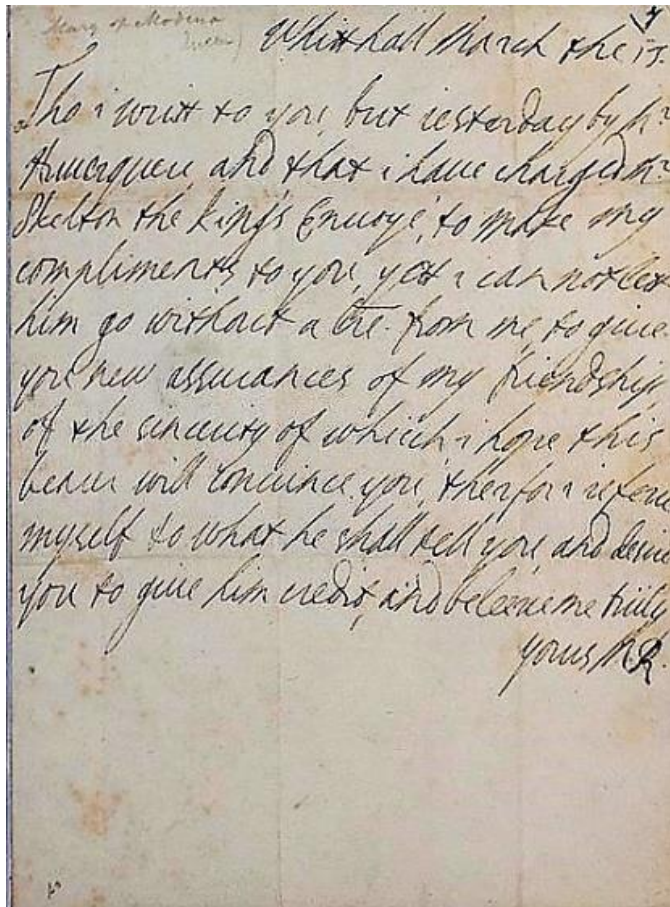 Mary of Modena
Queen)
Whitthall March the 15.
Tho i writt to you but iesterday by Mr
and that i have charged Mr
Skelton the king's Envoyé, to make my
compliments to you, yett i can not lett
him go without a tre. from me to give
you new assurances of my friendship,
of the sincerity of which i hope this
bearer will convince you, therfor i refere
myself to what he shall tell you, and desire
you to give him credit, and beleeve me truly
yours M.R.